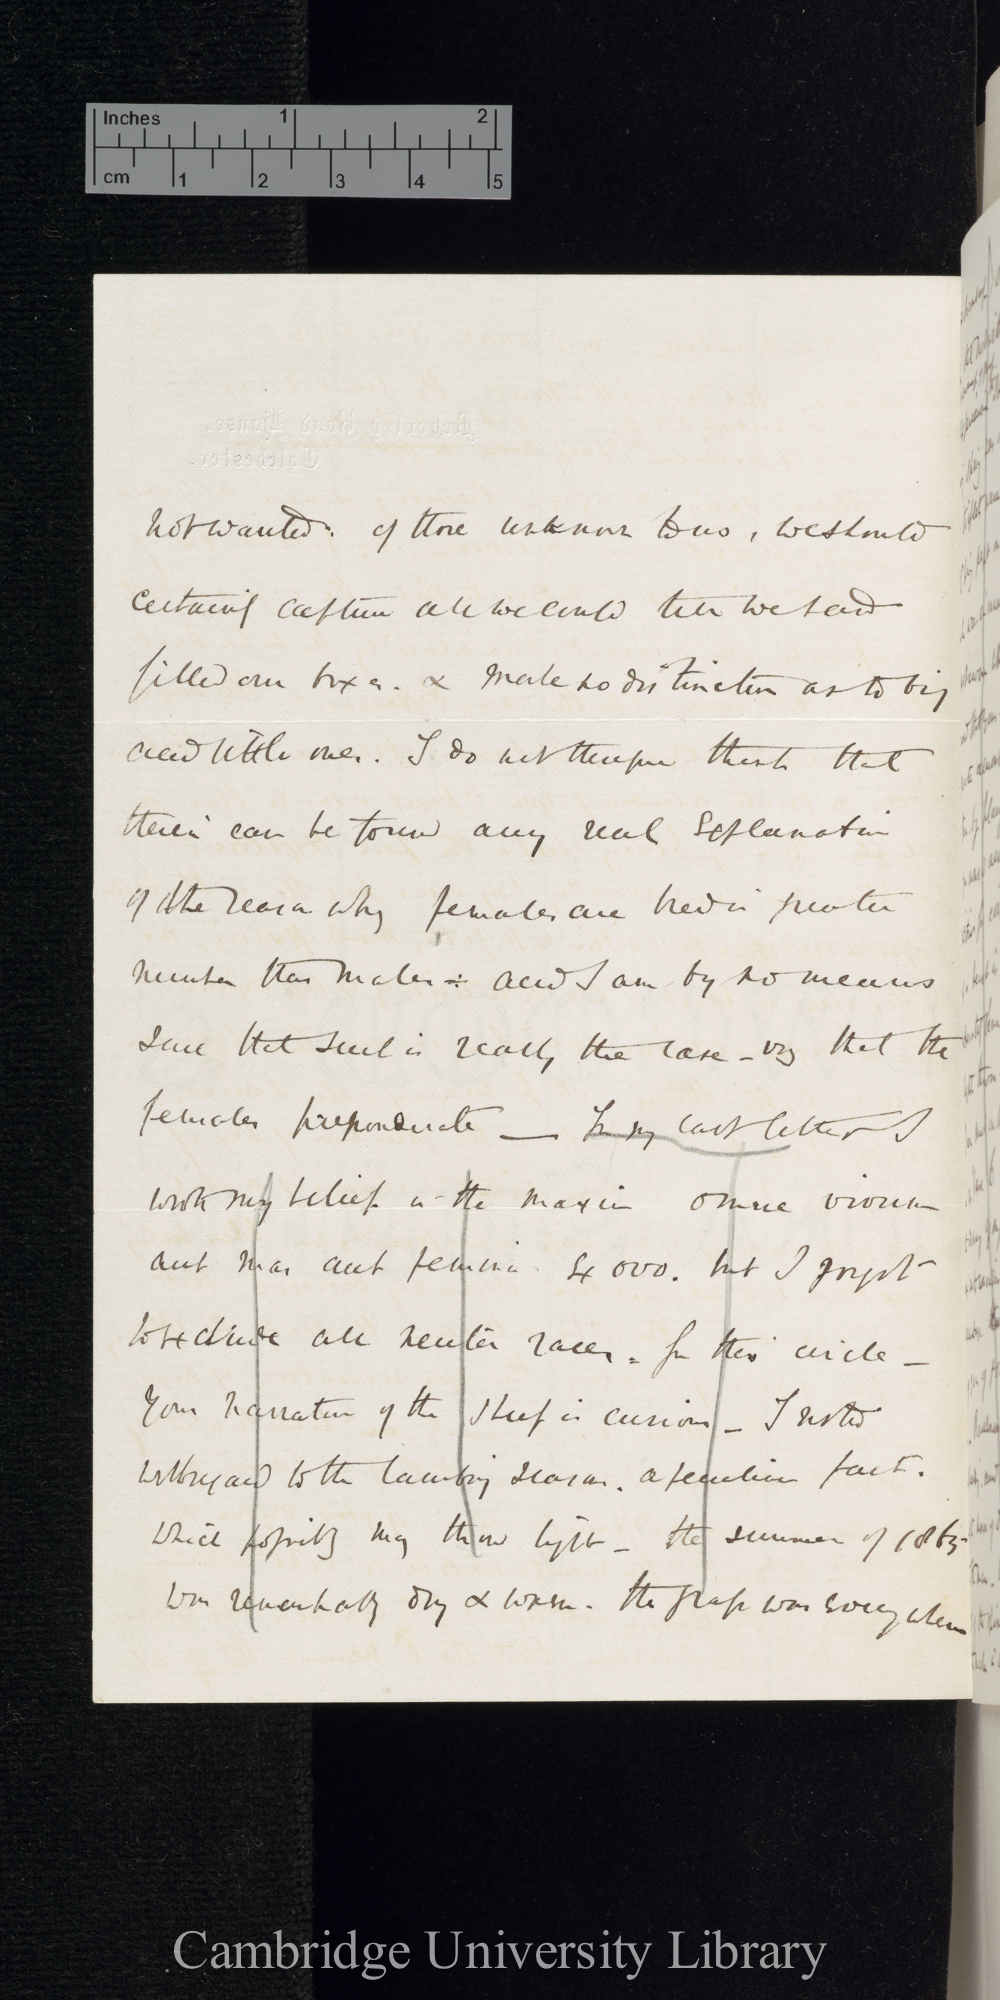 Inches 1 2
cm 1 2 3 4 5
not wanted: of those unknown to us, we should
certainly capture all we could till we had
filled our boxes. & make no distinction as to big
and little ones. I do not therefore think that
therein can be found any real Explanation
of the reason why females are bred in greater
number than males: and I am by no means
sure that such is really the case – viz that the
females preponderate — In my last letter I
wrote my belief in the maxim omne vivum
aut mas aut femina ex ovo. but I forgot
to exclude all neuter races. from this circle –
Your narrative of the sheep is curious – I noted
with regard to the lambing season. a peculiar fact.
which possibly may throw light – the summer of 1865
was remarkably dry & warm. the grass was everywhere
Cambridge University Library